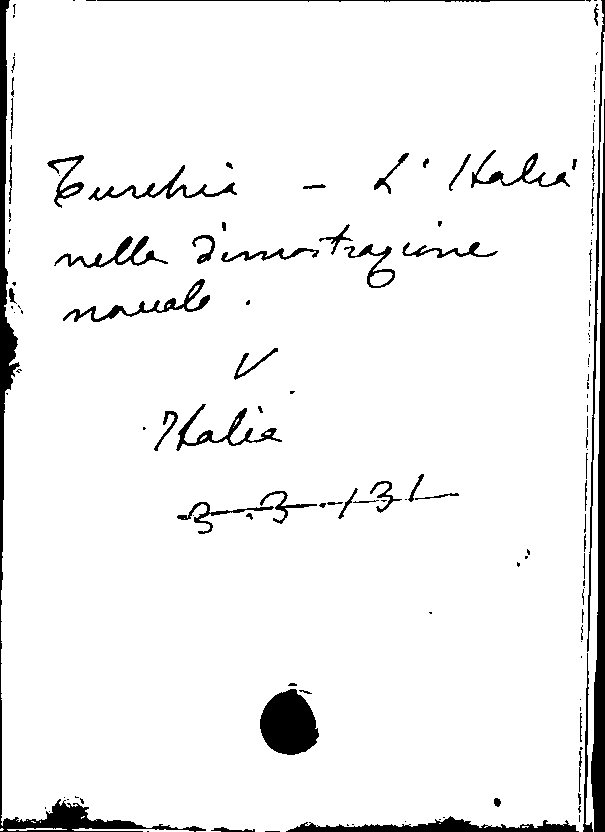 Turchia - L'Italia
nella dimostrazione
navale.
V
Italia
3.3.131